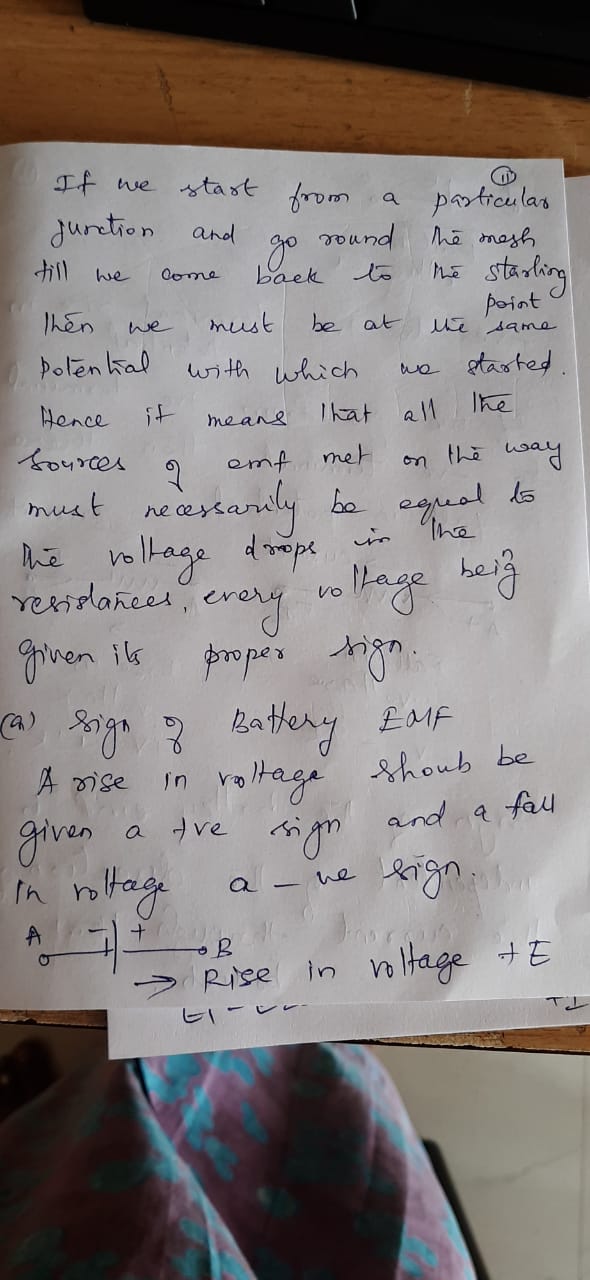 11
If we start from a particular
junction and go round the mesh
till we come back to the starting
point
then we must be at the same
potential with which we started.
Hence it means that all the
sources of emf met on the way
must necessarily be equal to
the voltage drops in the
resistances, every voltage being
given its proper sign.
(a) Sign of Battery EMF
A rise in voltage shoub be
given a +ve sign and a fall
in voltage a -ve sign.
A - + B
→ Rise in voltage +E